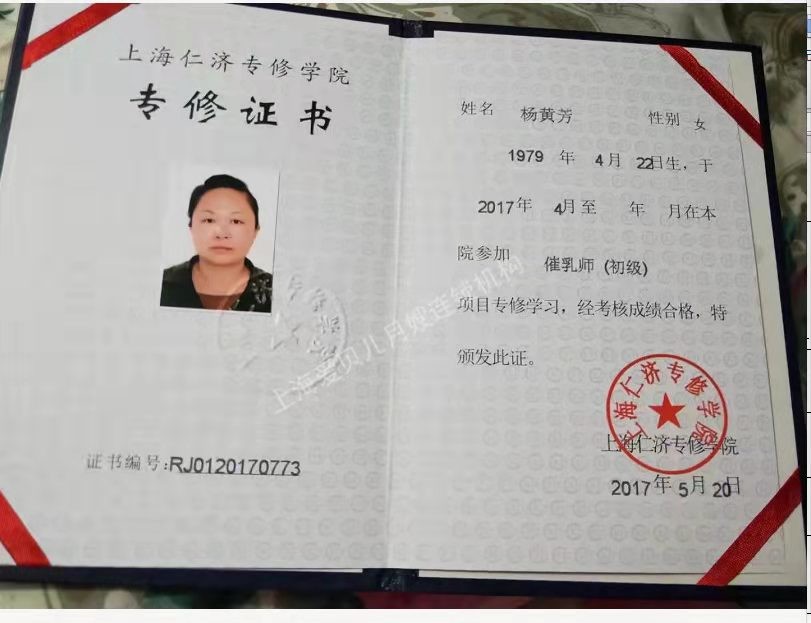 上海仁济专修学院
专修证书
证书编号:RJ0120170773
姓名 杨黄芳 性别 女
1979 年 4月 22日生，于
2017年 4月至 年 月在本
院参加 催乳师 (初级)
项目专修学习，经考核成绩合格，特
颁发此证。
上海仁济专修学院
上海仁济专修学院
2017年 5月 20日
上海爱贝儿月嫂连锁机构